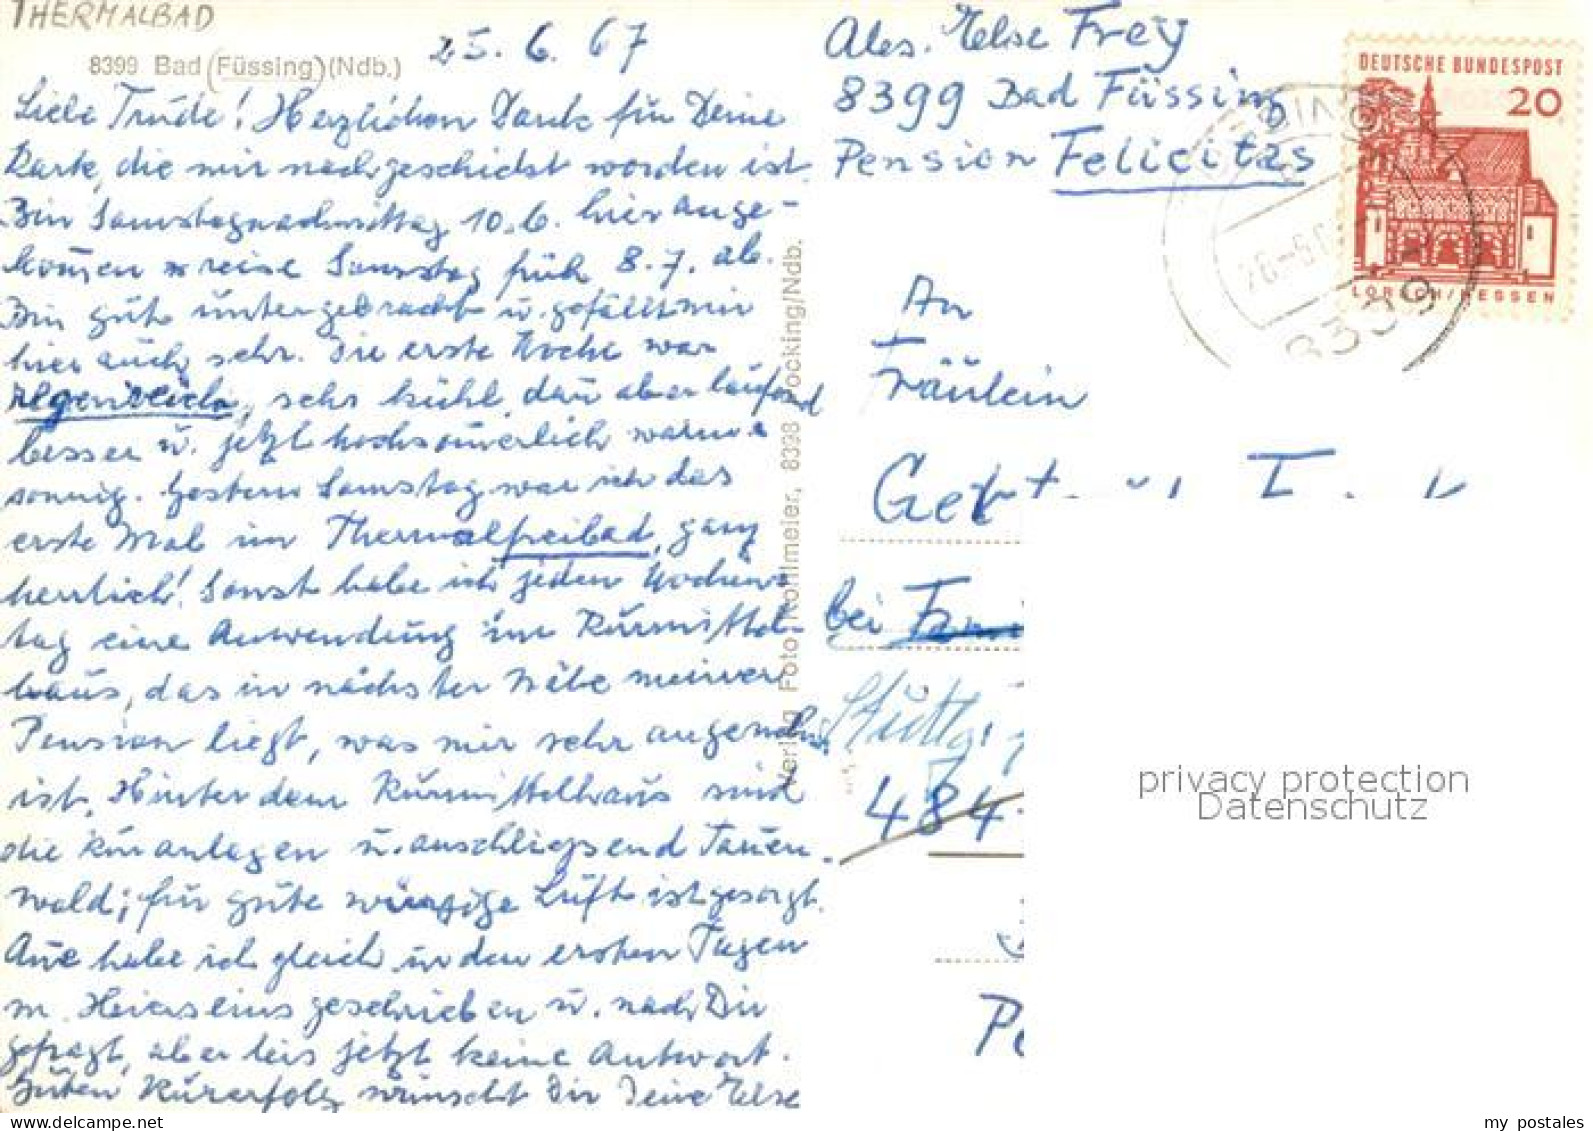 THERMALBAD
8399 Bad (Füssing) (Ndb.)
25. 6. 67
Liebe Trude! Herzlichen Dank für Deine
Karte, die mir nachgeschickt worden ist.
Bin Samstagnachmittag 10.6. hier ange-
kommen u. reise Samstag früh 8.7. ab.
Bin gut untergebracht u. gefällt mir
hier auch sehr. Die erste Woche war
regenreich, sehr kühl, dann aber laufend
besser u. jetzt hochsommerlich warm u.
sonnig. Gestern Samstag war ich das
erste Mal im Thermalfreibad, ganz
herrlich! Sonst habe ich jeden Wochen-
tag eine Anwendung im Kurmittel-
haus, das in nächster Nähe meiner
Pension liegt, was mir sehr angenehm
ist. Hinter dem Kurmittelhaus sind
die Kuranlagen u. anschliessend Tannen-
wald; für gute würzige Luft ist gesorgt.
habe ich gleich in den ersten Tagen
n. geschrieben u. nach Dir
gefragt, aber bis jetzt keine Antwort.
Guten Kurerfolg wünscht Dir Deine Else
Verlag Foto Kohlmeier, 8398 Pocking/Ndb.
Abs. Else Frey
8399 Bad Füssing
Pension Felicitas
DEUTSCHE BUNDESPOST
20
LORSCH/HESSEN
8399
An
Fräulein
bei
484
privacy protection
Datenschutz
my postales